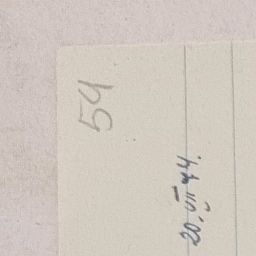 54
20. VII 44.